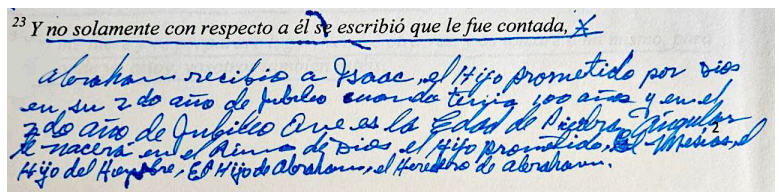 23 Y no solamente con respecto a él se escribió que le fue contada,
Abraham recibio a Isaac, el Hijo prometido por Dios
en su 2do año de Jubileo cuando tenia 100 años y en el
2do año de Jubileo Que es la Edad de Piedra Angular
le nacerá en el Reino de Dios el Hijo prometido, El Mesias, el
Hijo del Hombre, El Hijo de Abraham, el Heredero de Abraham.